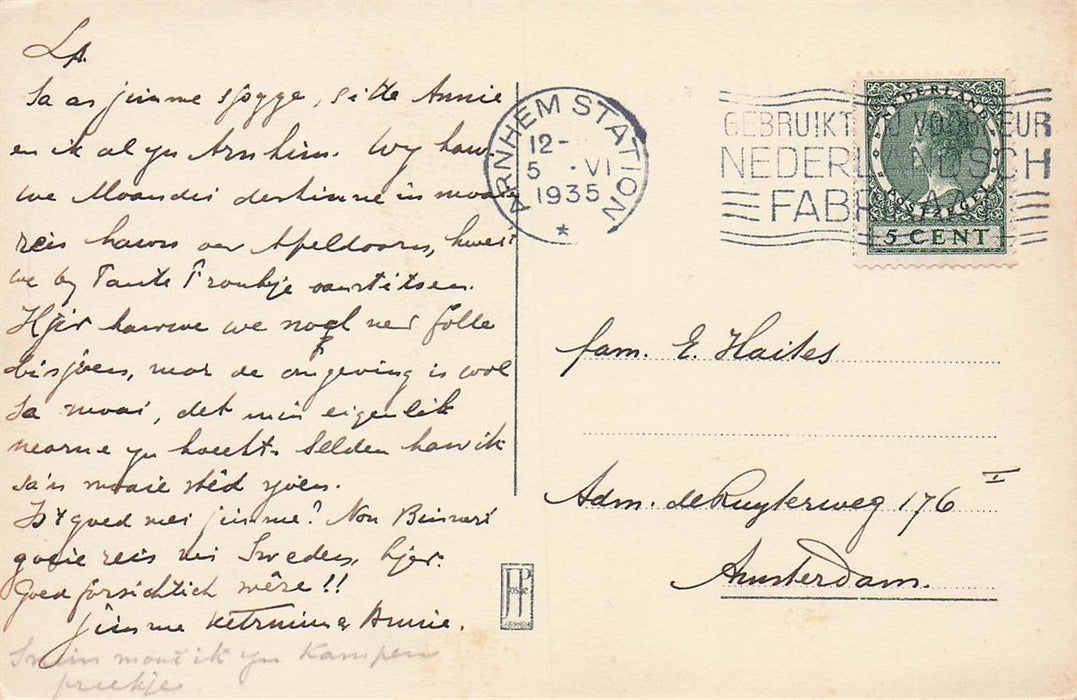 L.A.
Sa as jimme sjogge, sitte Annie
en ik al yn Arnhim. Wy haw
we Moandei destinne in moai
reis hawn oer Apeldoorn, hwer
we by Tante Froukje oanstitsen.
Hjir hawwe we nogl net folle
bisjoen, mar de omgeving is wol
sa moai, det min eigenlik
nearne yn hoecht. Selden haw ik
sa'n moaie stêd sjoen.
Is 't goed mei jimme? Nou
goeie reis nei Sweden, hjer.
Goed foarsichtich wêze!!
jimme Annie.
Snein moat ik yn Kampen
preekje
ARNHEM STATION
12-
5 .VI
1935
GEBRUIKT VOORKEUR
NEDERLANDSCH
NEDERLAND
POSTZEGEL
5 CENT
fam. E. Haites
Adm. de Ruyterweg 176 I
Amsterdam.
JP